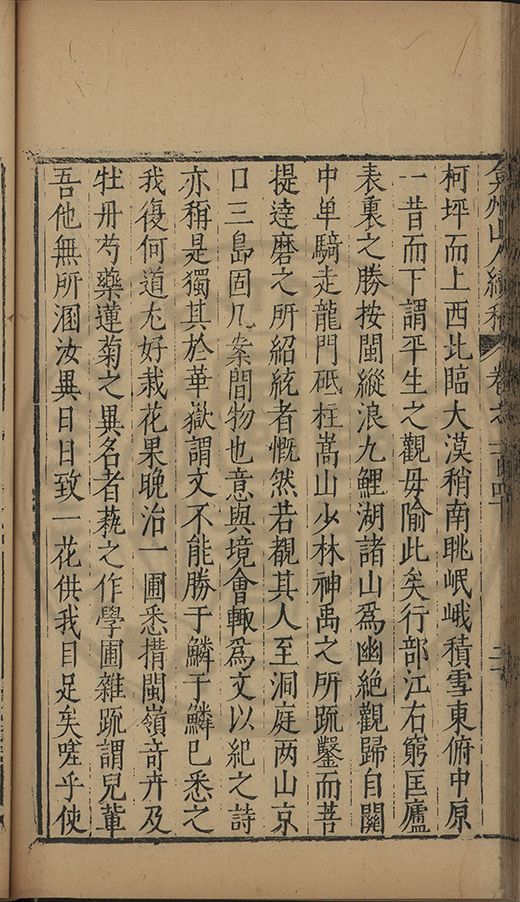 弇州山人續稿 卷之一百四 二
柯坪而上西北臨大漠稍南眺岷峨積雪東俯中原
一昔而下謂平生之觀毋隃此矣行部江右窮匡廬
表裏之勝按閩縱浪九鯉湖諸山爲幽絕觀歸自關
中单騎走龍門砥柱嵩山少林神禹之所䟽鑿而菩
提達磨之所紹統者慨然若覩其人至洞庭两山京
口三島固几案間物也意與境會輙爲文以紀之詩
亦稱是獨其於華嶽謂文不能勝于鱗于鱗已悉之
我復何道尤好栽花果晚治一圃悉搆閩嶺奇卉及
牡丹芍藥蓮菊之異名者蓺之作學圃雜䟽謂兒軰
吾他無所溷汝異日日致一花供我目足矣嗟乎使